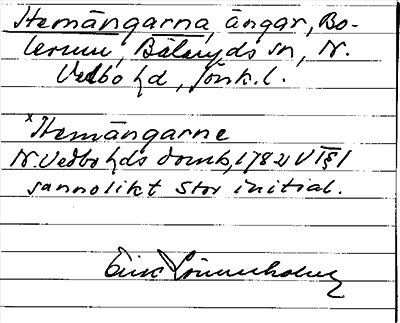 Hemängarna, ängar, Bo-
lerum, Bälaryds sn, N.
Vedbo hd, Jönk.l.
x Hemängarne
N. Vedbo hds domb, 1782 VI§1
sannolikt stor initial.
Erik Lönnerholm